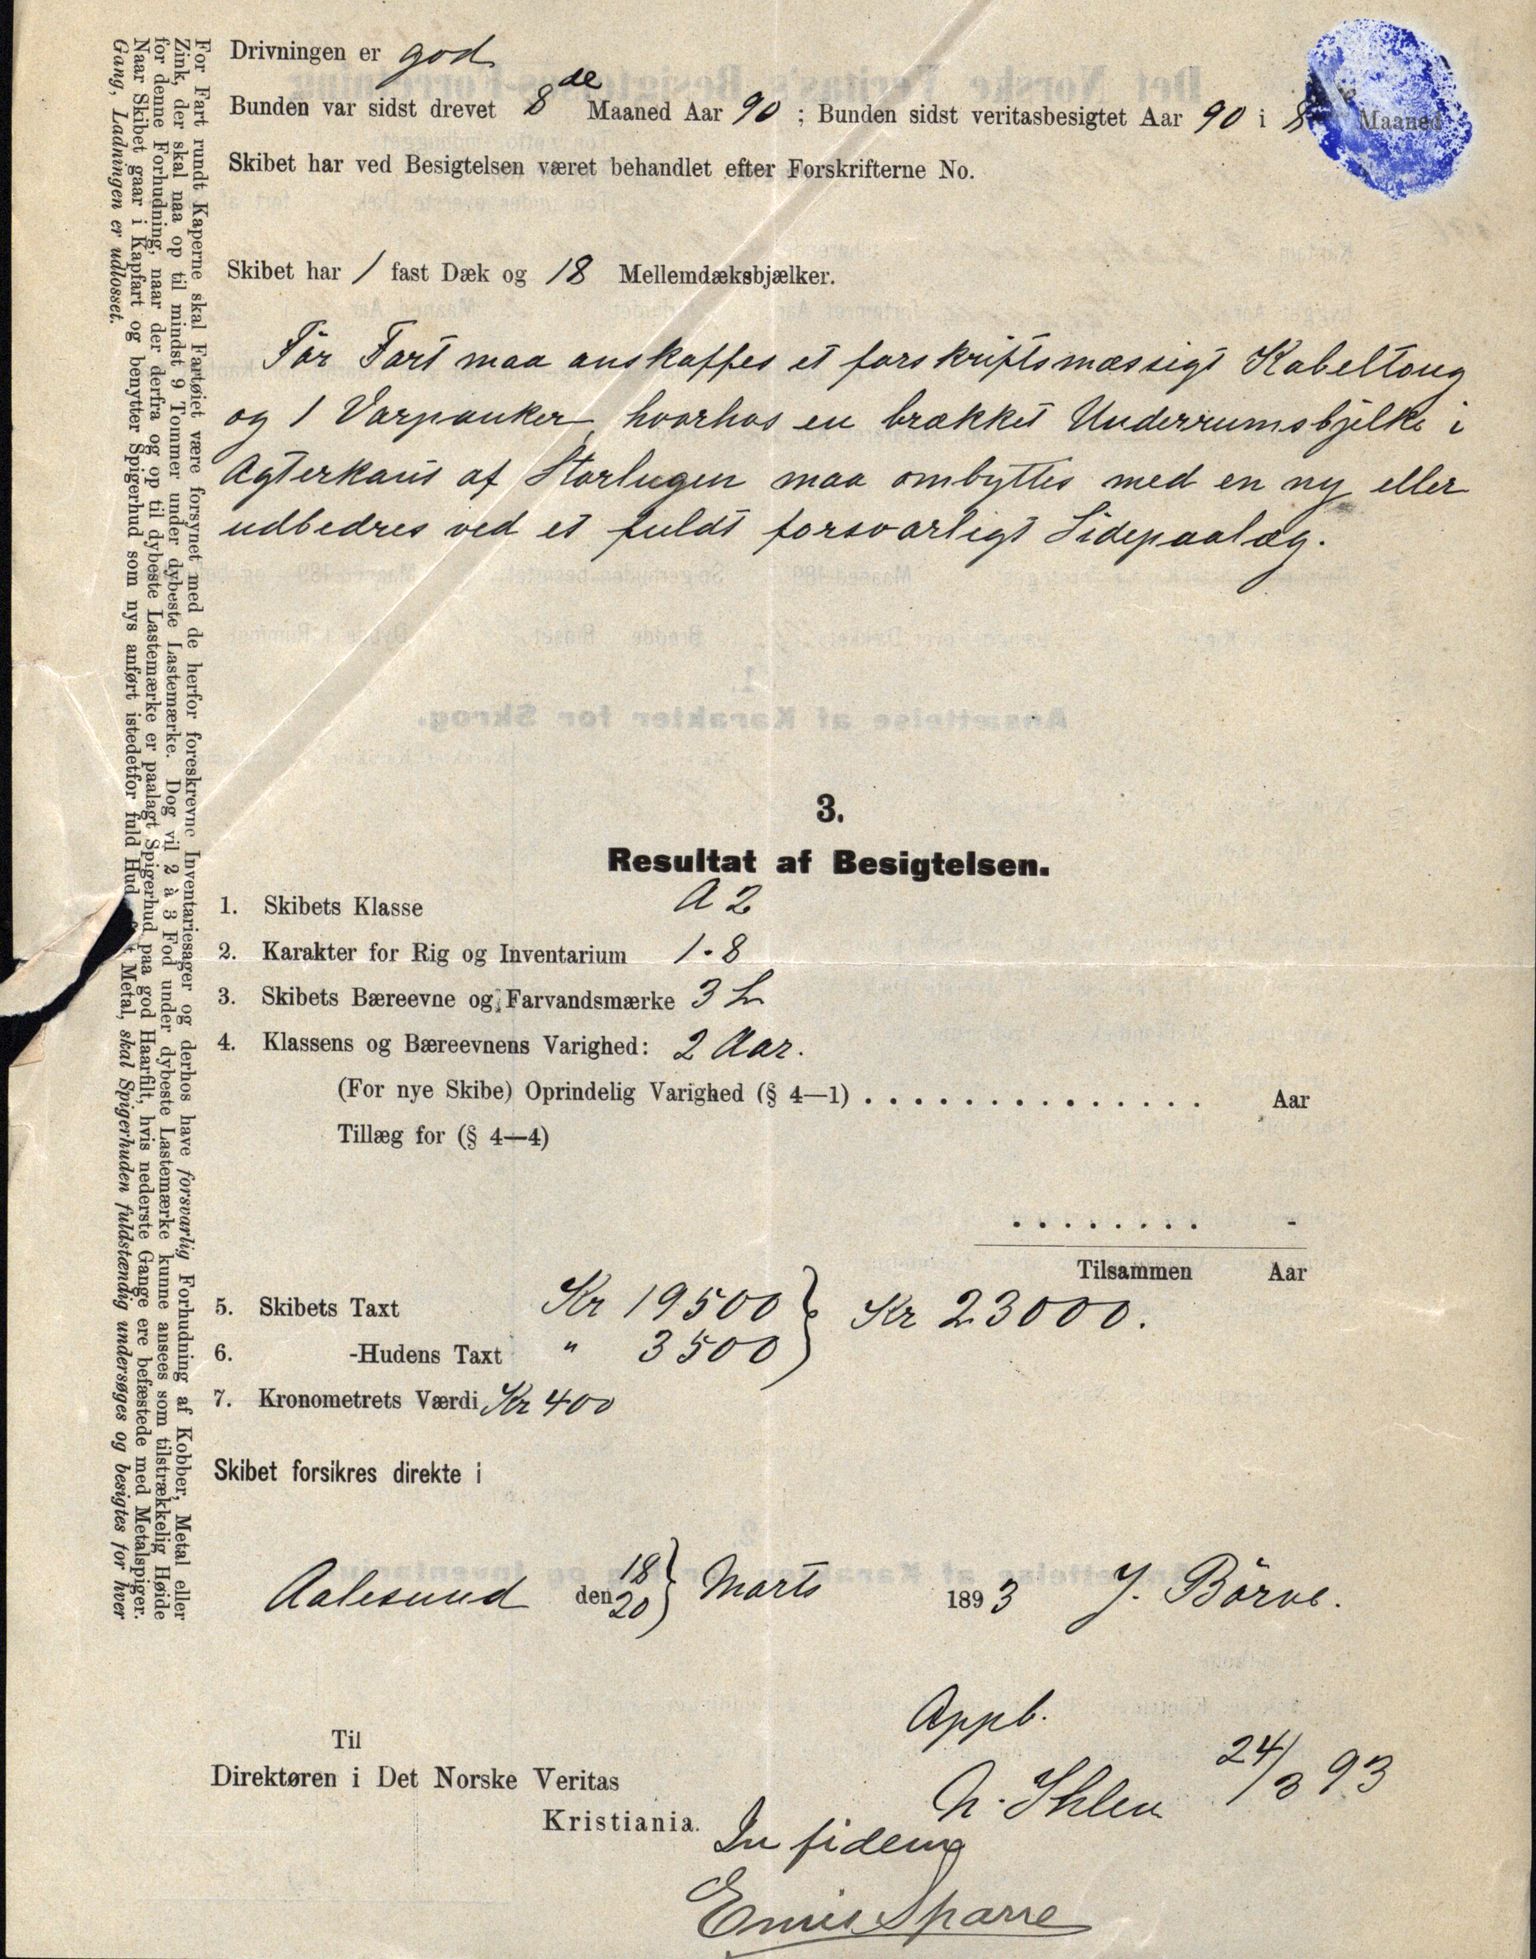 Drivningen er god
Bunden var sidst drevet 8de Maaned Aar 90 ; Bunden sidst veritasbesigtet Aar 90 i 8 Maaned
Skibet har ved Besigtelsen været behandlet efter Forskrifterne No.
Skibet har 1 fast Dæk og 18 Mellemdæksbjælker.
Før Fart maa anskaffes et forskriftsmæssigt Kabeltoug
og 1 Varpanker, hvorhos en brækket Underrumsbjelke i
Agterkant af Storlugen maa ombyttes med en ny eller
udbedres ved et fuldt forsvarligt Sidepaalæg.
3.
Resultat af Besigtelsen.
1. Skibets Klasse A 2
2. Karakter for Rig og Inventarium 1-8
3. Skibets Bæreevne og Farvandsmærke 3 L
4. Klassens og Bæreevnens Varighed: 2 Aar.
(For nye Skibe) Oprindelig Varighed (§ 4—1) . . . . . . . . . . . . . . . Aar
Tillæg for (§ 4—4)
. . . . . . . . -
Tilsammen Aar
5. Skibets Taxt Kr 19500 } Kr 23000.
6. -Hudens Taxt " 3500
7. Kronometrets Værdi Kr 400
Skibet forsikres direkte i
Aalesund den 18/20 } Marts 1893 J. Börve.
Appb.
N. Ihlen 24/3 93
Til
Direktøren i Det Norske Veritas
Kristiania.
In fidem
Sparre
For Fart rundt Kaperne skal Fartøiet være forsynet med de herfor foreskrevne Inventariesager og derhos have forsvarlig Forhudning af Kobber, Metal eller
Zink, der skal naa op til mindst 9 Tommer under dybeste Lastemærke. Dog vil 2 à 3 Fod under dybeste Lastemærke kunne ansees som tilstrækkelig Høide
for denne Forhudning, naar der derfra og op til dybeste Lastemærke er paalagt Spigerhud paa god Haarfilt, hvis nederste Gange ere befæstede med Metalspiger.
Naar Skibet gaar i Kapfart og benytter Spigerhud som nys anført istedetfor fuld Hud Metal, skal Spigerhuden fuldstændig undersøges og besigtes for hver
Gang, Ladningen er udlosset.